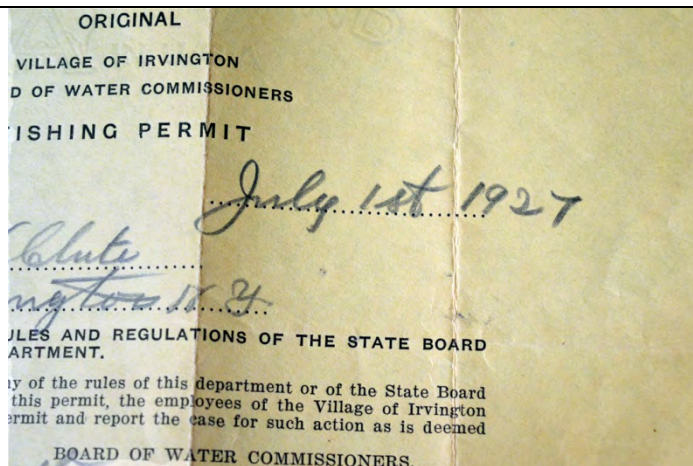 ORIGINAL
VILLAGE OF IRVINGTON
D OF WATER COMMISSIONERS
ISHING PERMIT
July 1st 1927
Clute
ngton N.Y.
ULES AND REGULATIONS OF THE STATE BOARD
ARTMENT.
ny of the rules of this department or of the State Board
this permit, the employees of the Village of Irvington
ermit and report the case for such action as is deemed
BOARD OF WATER COMMISSIONERS.